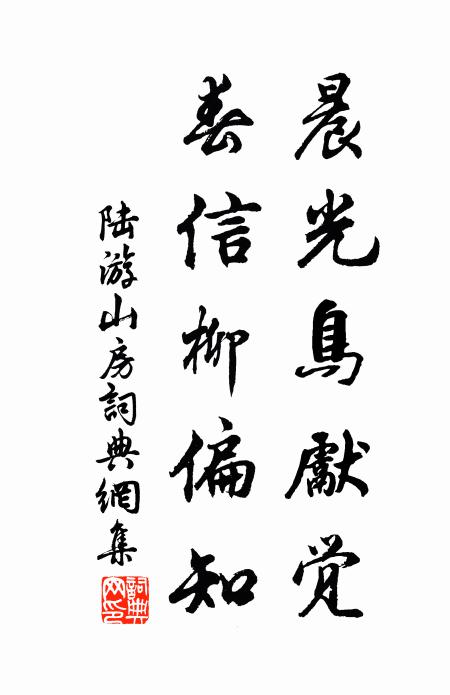 晨光鳥獻覚
春信柳偏知
陸游山房詞典網集
詞典网印